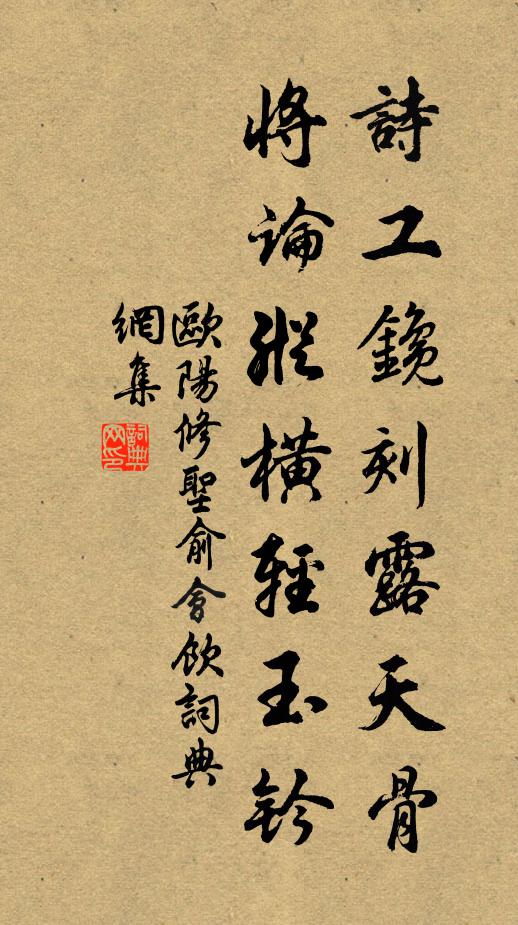 詩工鑱刻露天骨
將論縱橫輕玉鈐
歐陽修聖俞會飲詞典
網集
詞典网印